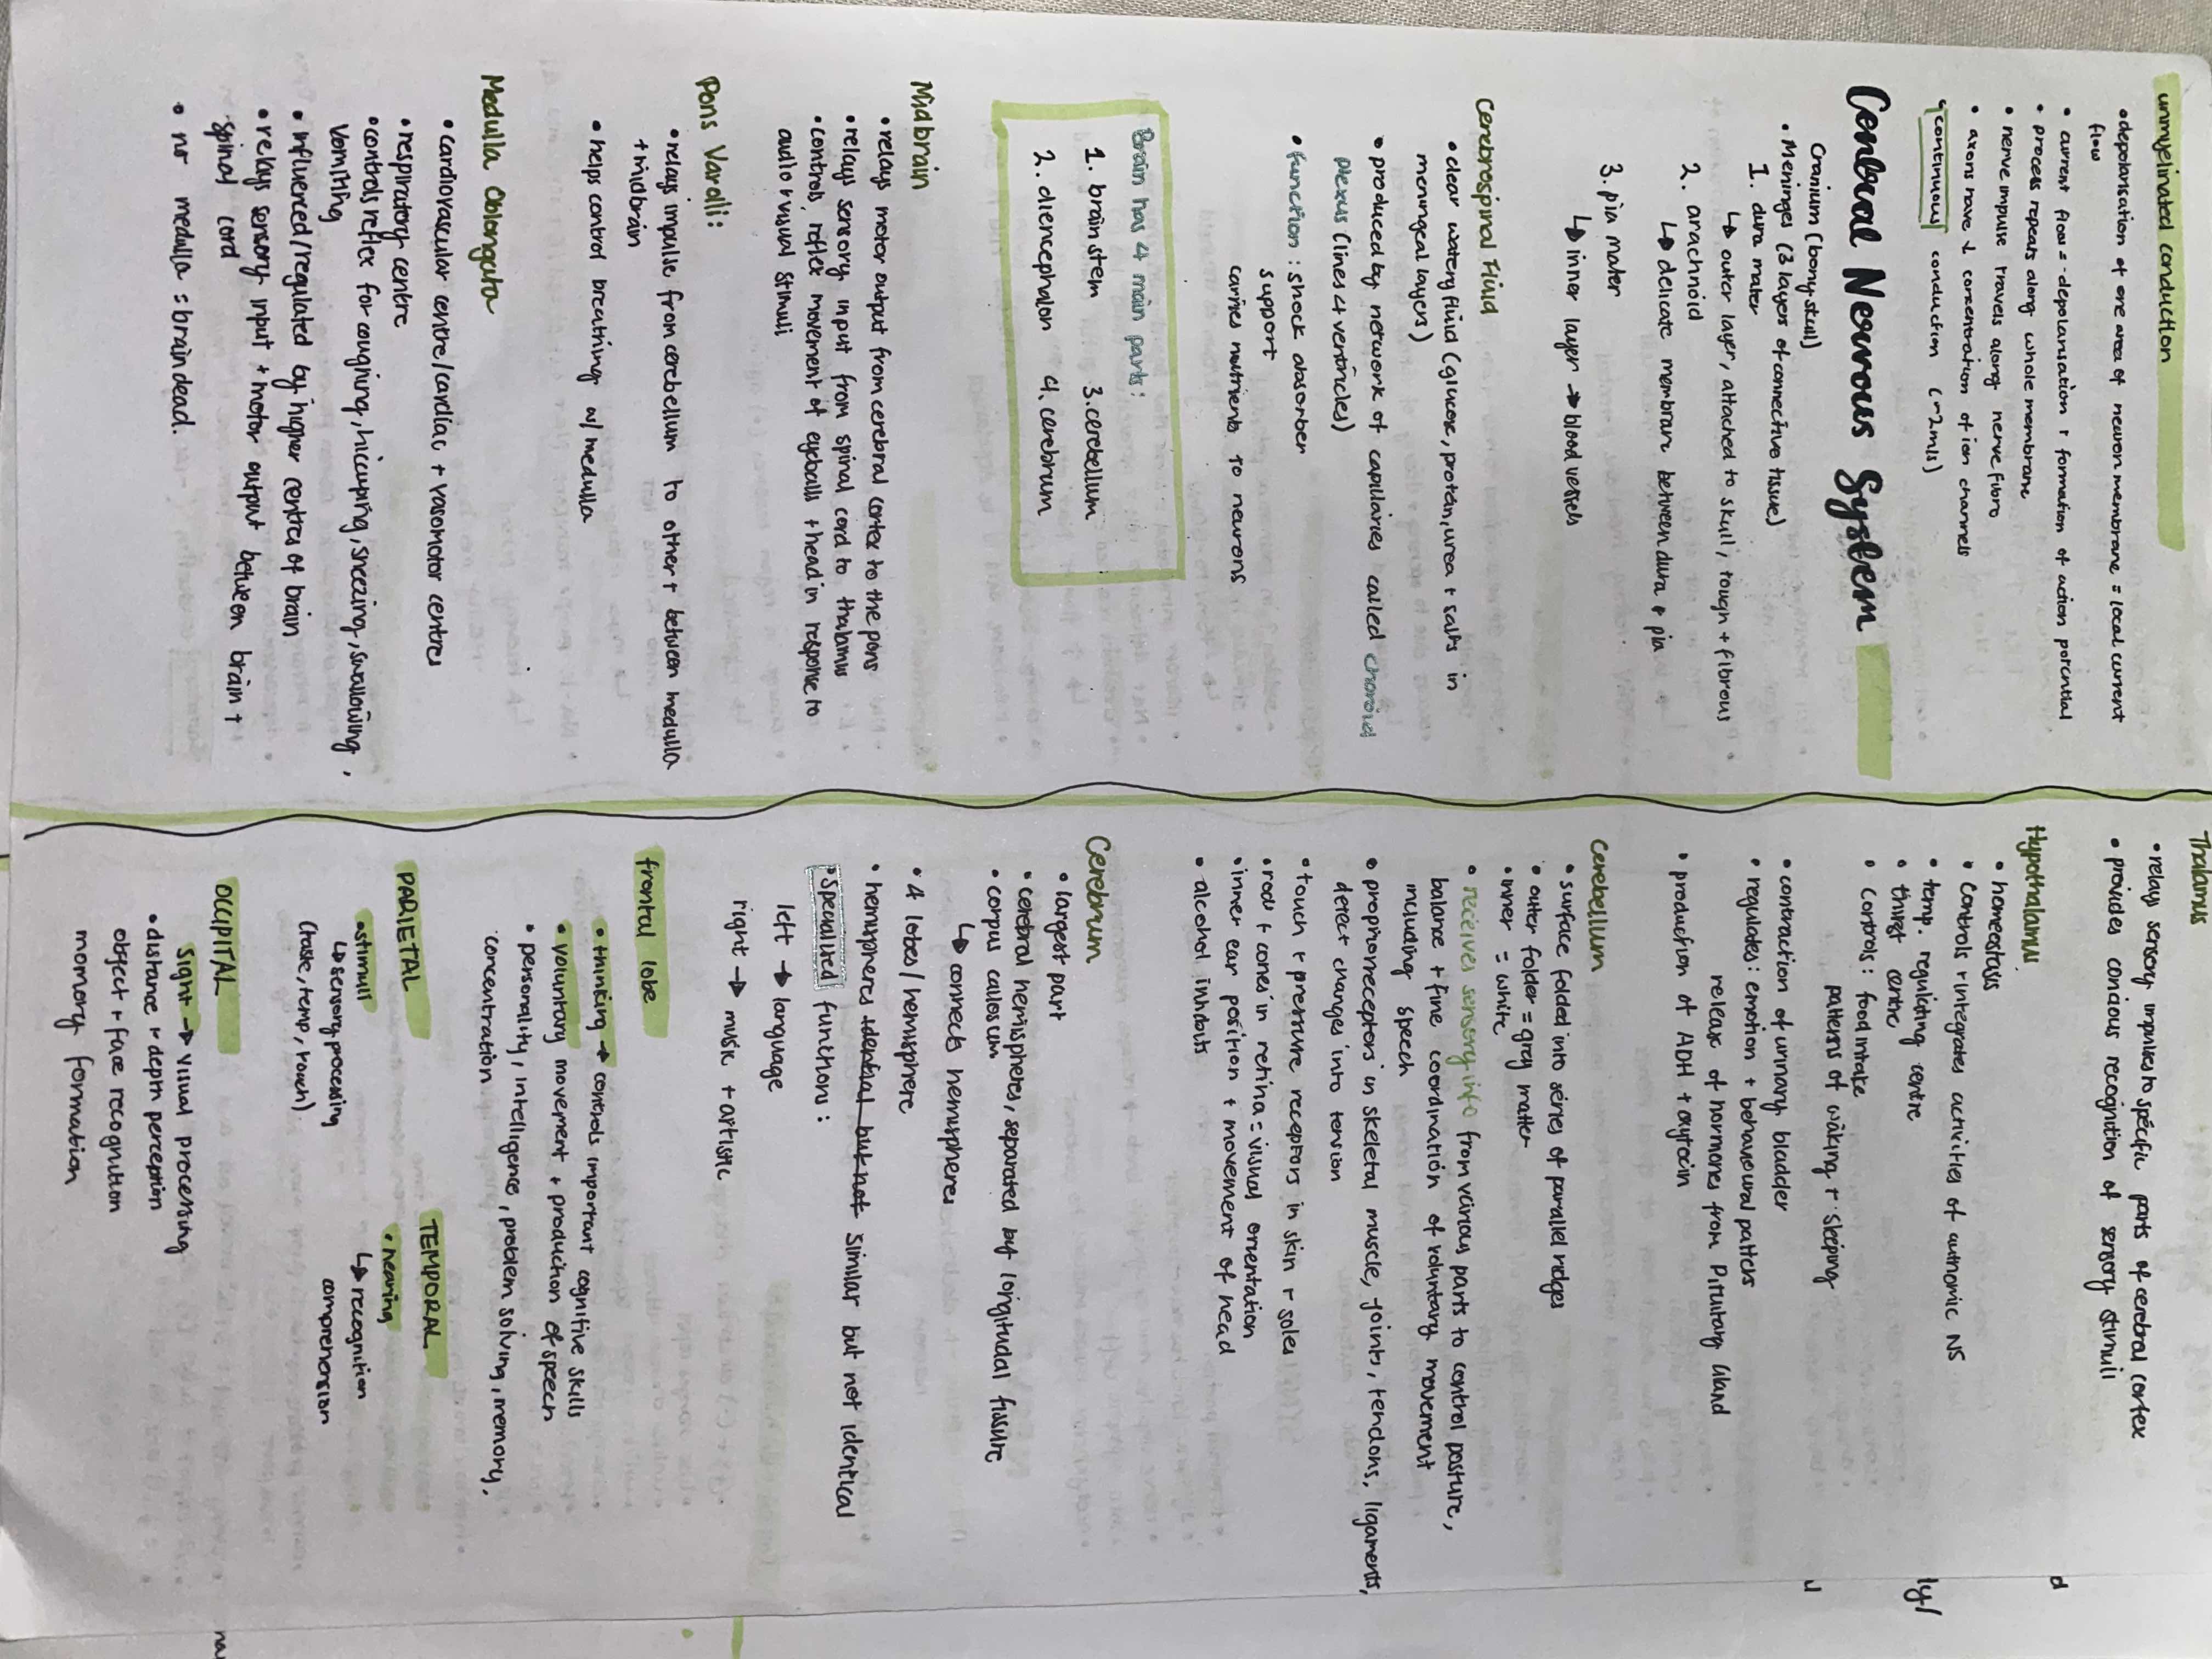 unmyelinated conduction
• depolarisation of one area of neuron membrane = local current
flow
• current flow = depolarisation + formation of action potential
• process repeats along whole membrane
• nerve impulse travels along nerve fibre
• axons have ↓ concentration of ion channels
• continuous conduction (~2m/s)
Central Nervous System
Cranium (bony skull)
• Meninges (3 layers of connective tissue)
1. dura mater
↳ outer layer, attached to skull, tough + fibrous
2. arachnoid
↳ delicate membrane between dura + pia
3. pia mater
↳ inner layer → blood vessels
Cerebrospinal Fluid
• clear watery fluid (glucose, protein, urea + salts in
meningeal layers)
• produced by network of capillaries called choroid
plexus (lines 4 ventricles)
• function: shock absorber
support
carries nutrients to neurons
Brain has 4 main parts:
1. brain stem 3. cerebellum
2. diencephalon 4. cerebrum
Midbrain
• relays motor output from cerebral cortex to the pons
• relays sensory input from spinal cord to thalamus
• controls reflex movement of eyeballs + head in response to
audio + visual stimuli
Pons Varolli:
• relays impulse from cerebellum to other + between medulla
+ midbrain
• helps control breathing w/ medulla
Medulla Oblongata
• cardiovascular centre/cardiac + vasomotor centres
• respiratory centre
• controls reflex for coughing, hiccuping, sneezing, swallowing,
vomiting
• influenced/regulated by higher centres of brain
• relays sensory input + motor output between brain +
spinal cord
• no medulla = brain dead.
Thalamus
• relay sensory impulses to specific parts of cerebral cortex
• provides concious recognition of sensory stimuli
Hypothalamus
• homeostasis
• controls + integrates activities of autnomic NS
• temp. regulating centre
• thirst centre
• controls: food intake
patterns of waking + sleeping
• contraction of urinary bladder
• regulates: emotion + behavioural patters
release of hormones from Pituitary Gland
• production of ADH + oxytocin
Cerebellum
• surface folded into series of parallel ridges
• outer folder = grey matter
• inner = white
• receives sensory info from various parts to control posture,
balance + fine coordination of voluntary movement
including speech
• proprioreceptors in skeletal muscle, joints, tendons, ligaments,
detect changes into tension
• touch + pressure receptors in skin + soles
• rods + cones in retina = visual orientation
• inner ear position + movement of head
• alcohol inhibits
Cerebrum
• largest part
• cerebral hemispheres, separated by longitudal fissure
• corpus callosum
↳ connects hemispheres
• 4 lobes/hemisphere
• hemispheres identical but not similar but not identical
• specalised functions:
left → language
right → music + artistic
frontal lobe
• thinking → controls important cognitive skills
• voluntary movement + production of speech
• personality, intelligence, problem solving, memory,
concentration
PARIETAL
• stimuli
↳ sensory processing
(taste, temp, touch)
TEMPORAL
• hearing
↳ recognition
comprehension
OCCIPITAL
sight → visual processing
• distance + depth perception
object + face recognition
momory formation
d
ly/
na